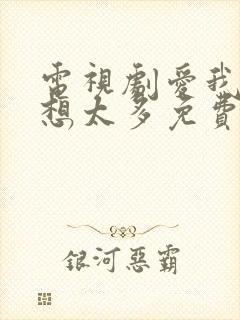 電視劇愛我
想太多免費
銀河惡霸